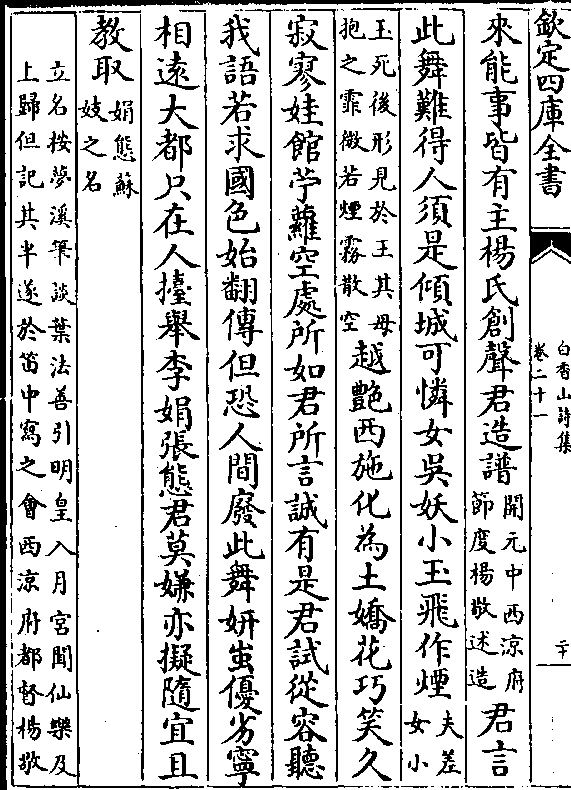 欽定四庫全書
白香山詩集
卷二十一
二十
來能事皆有主楊氏創聲君造譜
開元中西涼府
節度楊敬述造
君言
此舞難得人須是傾城可憐女吳妖小玉飛作煙
夫差
女小
玉死後形見於王其母
抱之霏微若煙霧散空
越艷西施化為土嬌花巧笑久
寂寥娃館苧蘿空處所如君所言誠有是君試從容聽
我語若求國色始翻傳但恐人間廢此舞妍蚩優劣寧
相遠大都只在人擡舉李娟張態君莫嫌亦擬隨宜且
教取
娟態蘇
妓之名
立名按夢溪筆談葉法善引明皇入月宮聞仙樂及
上歸但記其半遂於笛中寫之會西涼府都督楊敬